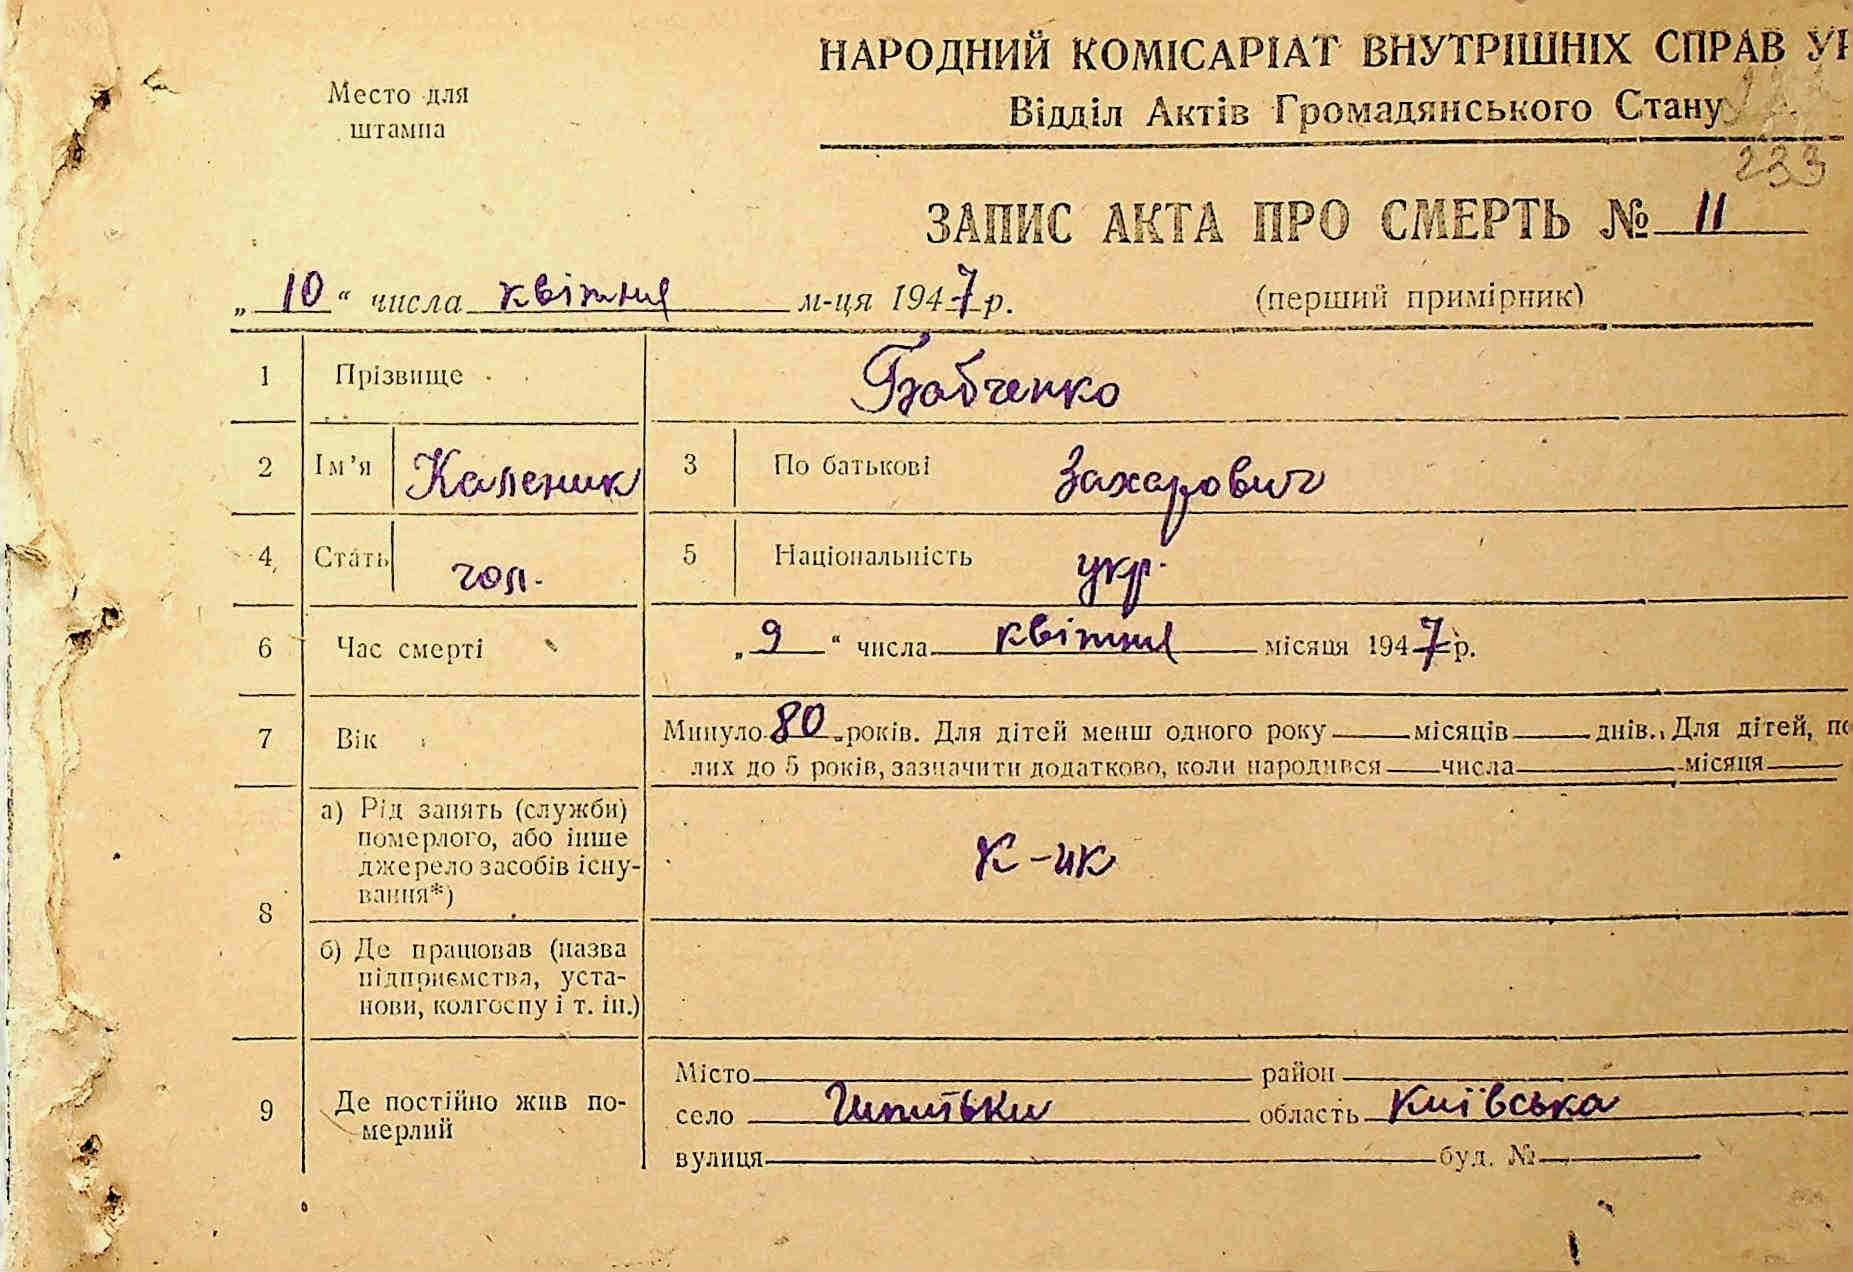 НАРОДНИЙ КОМІСАРІАТ ВНУТРІШНІХ СПРАВ УР
Место для
штампа
Відділ Актів Громадянського Стану
233
ЗАПИС АКТА ПРО СМЕРТЬ № 11
„10“ числа квітня м-ця 1947 р.
(перший примірник)
1 Прізвище Бабченко
2 Ім’я Каленик 3 По батькові Захарович
4 Стать чол. 5 Національність укр.
6 Час смерті „9“ числа квітня місяця 1947 р.
7 Вік Минуло 80 років. Для дітей менш одного року місяців днів. Для дітей, по
лих до 5 років, зазначити додатково, коли народився числа місяця
8 а) Рід занять (служби)
померлого, або інше
джерело засобів існу-
вання*)
К-ик
б) Де працював (назва
підприємства, уста-
нови, колгоспу і т. ін.)
9 Де постійно жив по-
мерлий
Місто район
село Шпитьки область Київська
вулиця буд. №